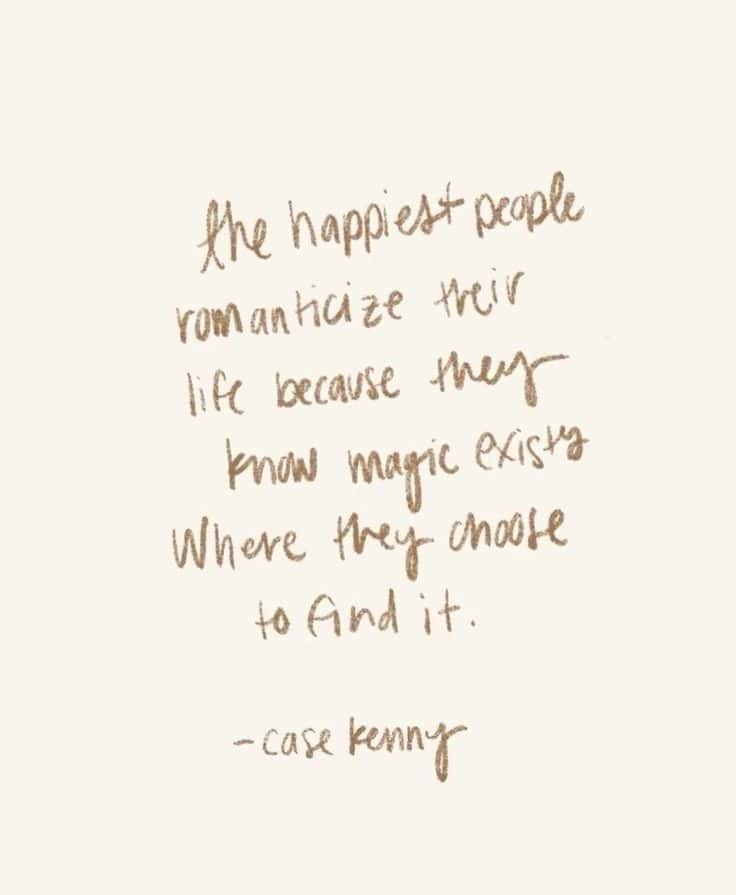 the happiest people
romanticize their
life because they
know magic exists
Where they choose
to find it.
-case kenny